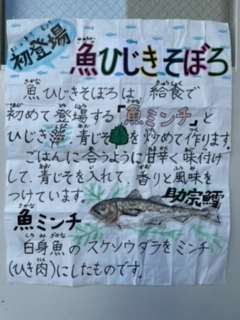 初登場
魚ひじきそぼろ
魚ひじきそぼろは、給食で
初めて登場する「魚ミンチ」と
ひじき、青じそを炒めて作ります。
ごはんに合うように甘辛く味付け
して、青じそを入れて、香りと風味を
つけています。
助宗鱈
魚ミンチ
白身魚のスケソウダラをミンチ
(ひき肉)にしたものです。